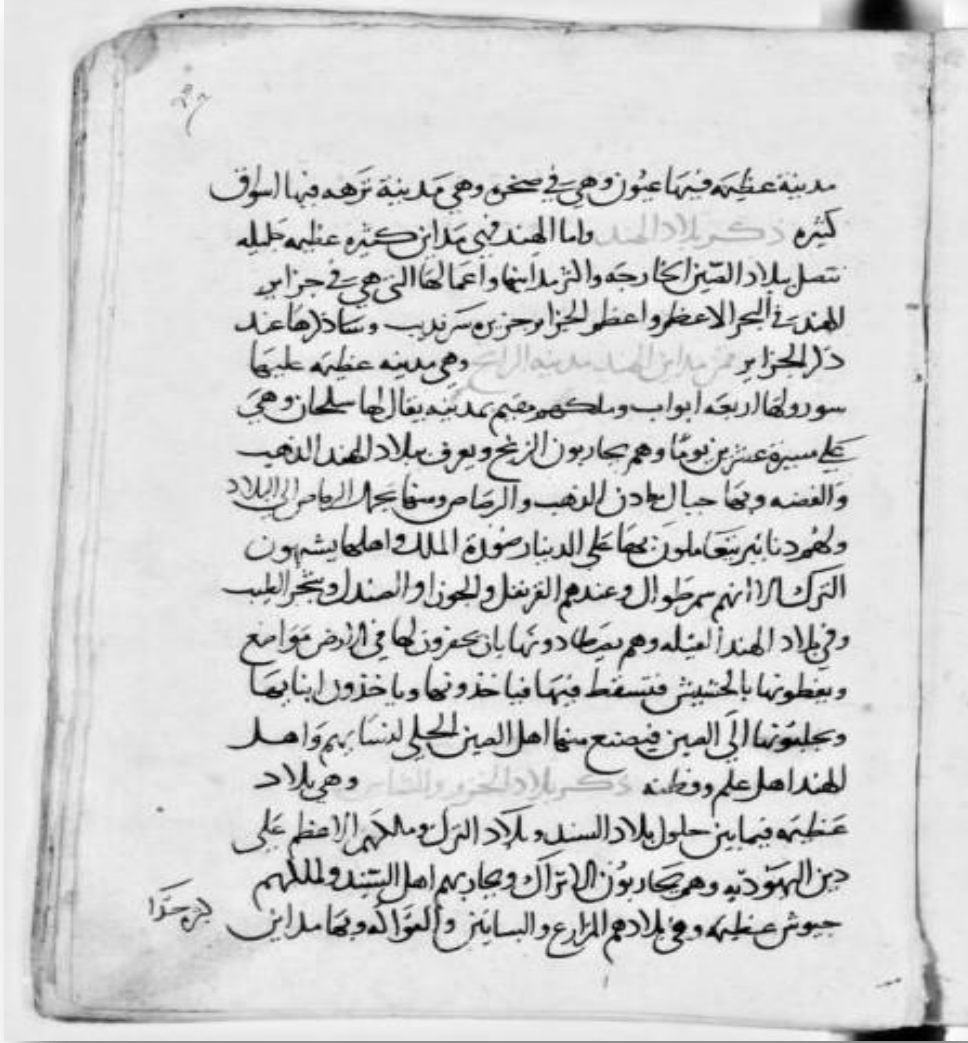 مدينة عظيمه فيها عيون وهي في صخره وهي مدينة نزهه فيها اسواق
كثيره ذكر بلاد الهند واما الهند فهي مداين كثيره عظيمه جليله
تتصل ببلاد الصين الخارجه واكثر مداينها واعمالها التي هي في جزاير
الهند في البحر الاعظم واعظم الجزاير جزيره سرنديب وساذكرها عند
ذكر الجزاير فمن مداين الهند مدينه الرانج وهي مدينه عظيمه عليها
سور ولها اربعه ابواب وملكهم مقيم بمدينه يقال لها سلحان وهي
علي مسيرة عشرين يوما وهم يحاربون الزنج ويعرف ببلاد الهند الذهب
والفضه وبها جبال معادن الذهب والرصاص ومنها يحمل الرصاص الي البلاد
ولهم دنانير يتعاملون بها علي الدينار صورة الملك واهلها يشبهون
الترك الا انهم سمر طوال وعندهم القرنفل والجوزا والصندل وشجر الطيب
وفي بلاد الهند الفيله وهم يصطادونها بان يحفرون لها في الارض مواضع
ويغطونها بالحشيش فتسقط فيها فياخذونها وياخذون انيابها
ويجلبونها الي الصين فيصنع منها اهل الصين الحلي لنسايهم واهل
الهند اهل علم وفطنه ذكر بلاد الخزر وهي بلاد
عظيمه فيما بين حلول بلاد السند وبلاد الترك وملكهم الاعظم علي
دين اليهوديه وهم يحاربون الاتراك ويحاربهم اهل السند ولملكهم
جيوش عظيمه وفي بلادهم المزارع والبساتين والفواكه وبها مداين
كثيره جدا